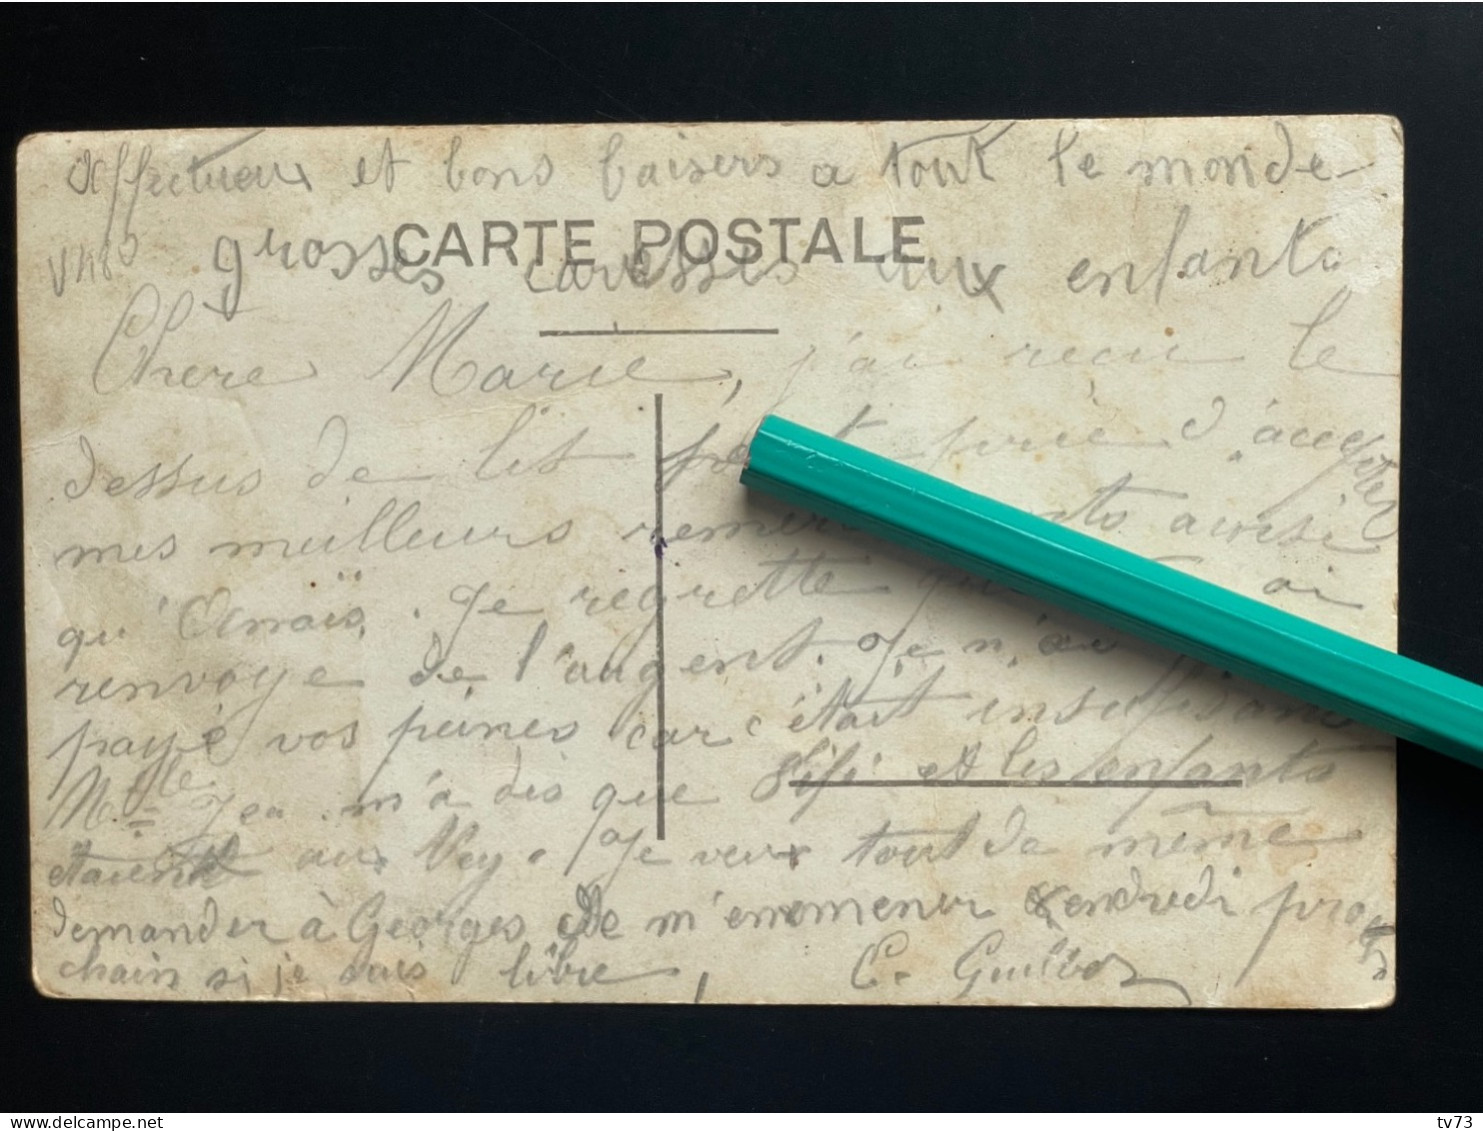 Affectueux et bons baisers a tout le monde
CARTE POSTALE
V480
grosses caresses aux enfants
Chere Marie, j'ai recu le
dessus de lit prie d'accepter
mes meilleurs aussi
qu' Je regrette ai
renvoye de l'argent. Je n'ai
payé vos peines car c'était insufisant
Mlle m'a dis que Fifi et les enfants
etaient au Vey. Je veux tout de même
demander à Georges de m'emmener vendredi pro
chain si je suis libre, C.
delcampe.net
tv73